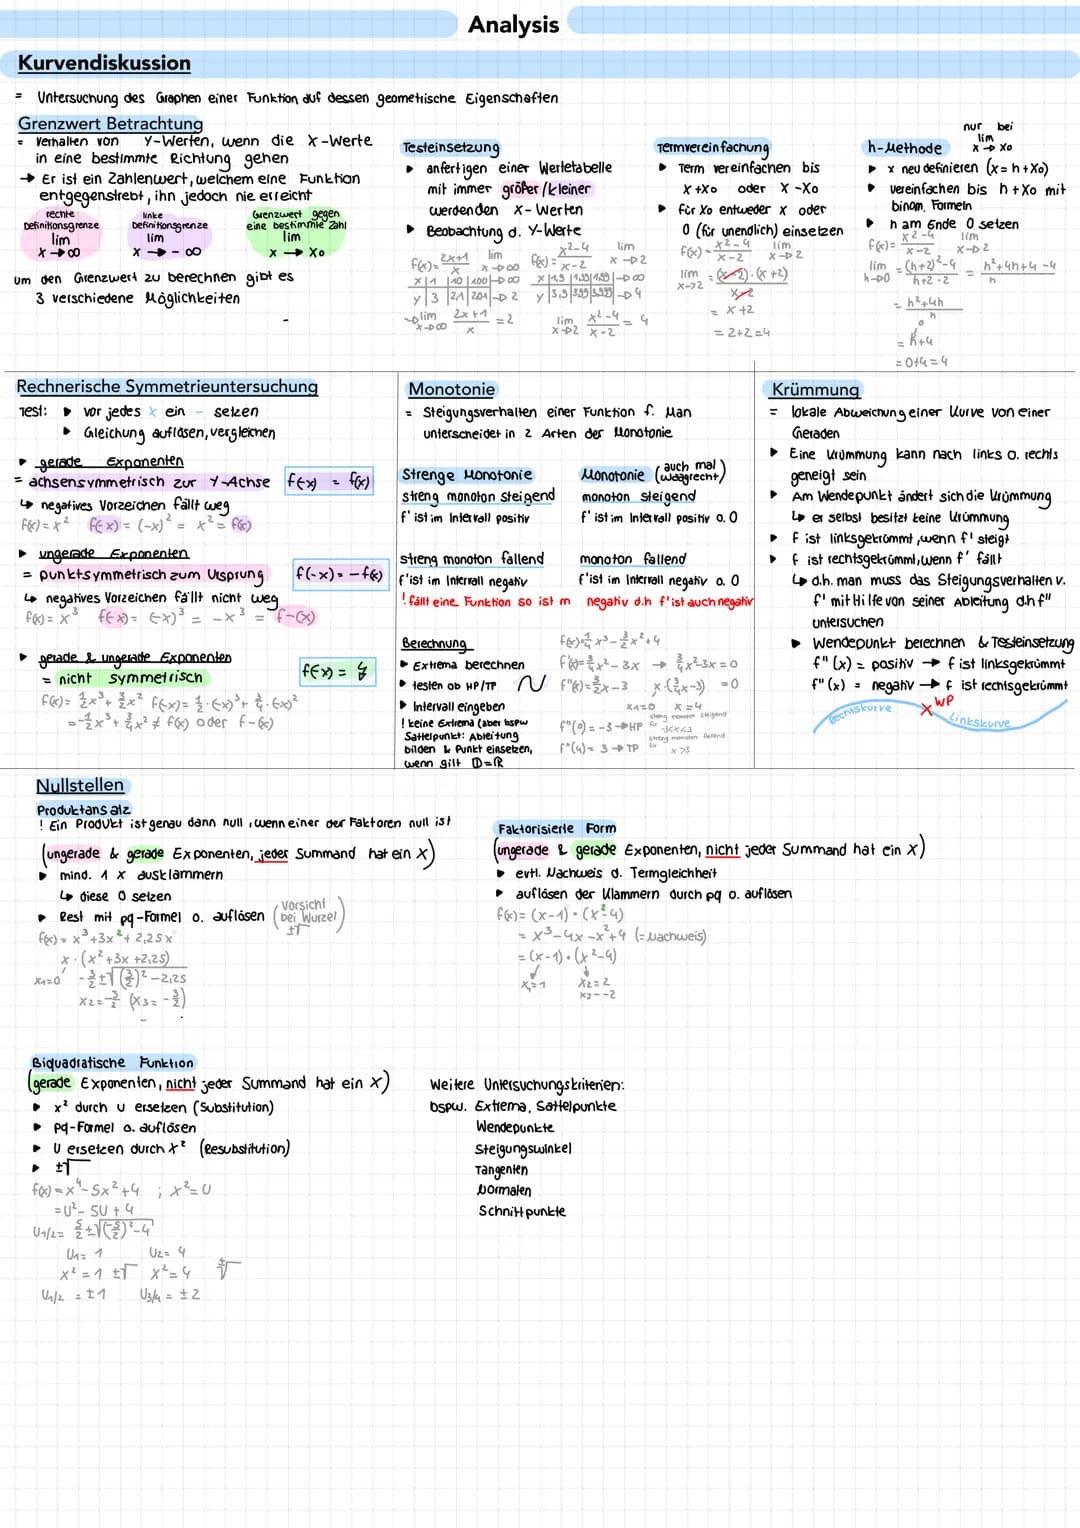 Analysis
Kurvendiskussion
= Untersuchung des Graphen einer Funktion auf dessen geometrische Eigenschaften
Grenzwert Betrachtung
= Verhalten von y-Werten, wenn die x-Werte
in eine bestimmte Richtung gehen
→ Er ist ein Zahlenwert, welchem eine Funktion
entgegenstrebt, ihn jedoch nie erreicht
rechte Definitionsgrenze lim x→∞
linke Definitionsgrenze lim x→-∞
Grenzwert gegen eine bestimmte Zahl lim x→x₀
um den Grenzwert zu berechnen gibt es
3 verschiedene Möglichkeiten
Testeinsetzung
▸ anfertigen einer Wertetabelle
mit immer größer/kleiner
werdenden x-Werten
▸ Beobachtung d. y-Werte
f(x)= 2x+1/x lim x→∞
x | 1 | 10 | 100 | →∞
y | 3 | 2,1 | 2,01 | →2
→ lim x→∞ 2x+1/x = 2
f(x)= x²-4/x-2 lim x→2
lim x→2 x²-4/x-2 = 4
Termvereinfachung
▸ Term vereinfachen bis
x+x₀ oder x-x₀
▸ für x₀ entweder x oder
0 (für unendlich) einsetzen
f(x)= x²-4/x-2 lim x→2
lim x→2 = (x-2)·(x+2)/x-2
= x+2
= 2+2=4
h-Methode
nur bei lim x→x₀
▸ x neu definieren (x=h+x₀)
▸ vereinfachen bis h+x₀ mit
binom. Formeln
▸ h am Ende 0 setzen
f(x)= x²-4/x-2 lim x→2
lim h→0 = (h+2)²-4/h+2-2 = h²+4h+4-4/h
= h²+4h/h
= h+4
= 0+4=4
Rechnerische Symmetrieuntersuchung
Test: ▸ vor jedes x ein - setzen
▸ Gleichung auflösen, vergleichen
▸ gerade Exponenten
= achsensymmetrisch zur y-Achse f(-x) = f(x)
↳ negatives Vorzeichen fällt weg
f(x)=x² f(-x)=(-x)²= x²= f(x)
▸ ungerade Exponenten
= punktsymmetrisch zum Ursprung f(-x)=-f(x)
↳ negatives Vorzeichen fällt nicht weg
f(x)= x³ f(-x)= (-x)³ = -x³ = f-(x)
▸ gerade & ungerade Exponenten
= nicht symmetrisch
f(x)= ½x³+ ¾x² f(-x)= ½·(-x)³+ ¾·(-x)²
=-½x³+ ¾x² ≠ f(x) oder f-(x)
Monotonie
= Steigungsverhalten einer Funktion f. Man
unterscheidet in 2 Arten der Monotonie
Strenge Monotonie
streng monoton steigend
f' ist im Intervall positiv
streng monoton fallend
f' ist im Intervall negativ
Monotonie (auch mal waagrecht)
monoton steigend
f' ist im Intervall positiv o. 0
monoton fallend
f' ist im Intervall negativ o. 0
! fällt eine Funktion so ist m negativ d.h f' ist auch negativ
Berechnung
▸ Extrema berechnen
▸ testen ob HP/TP
▸ Intervall eingeben
! keine Extrema (aber bspw
Sattelpunkt: Ableitung
bilden & Punkt einsetzen,
wenn gilt D=ℝ
f(x)=¼x³-3/2x²+4
f'(x)=¾x²-3x → ¾x²-3x=0
f"(x)=3/2x-3 x·(¾x-3) =0
x₁=0 x=4
f"(0)=-3→HP für streng monoton steigend -3<x<3
f"(4)= 3→TP für streng monoton fallend x>3
Krümmung
= lokale Abweichung einer Kurve von einer
Geraden
▸ Eine Krümmung kann nach links o. rechts
geneigt sein
▸ Am Wendepunkt ändert sich die Krümmung
↳ er selbst besitzt keine Krümmung
▸ f ist linksgekrümmt, wenn f' steigt
▸ f ist rechtsgekrümmt, wenn f' fällt
↳ d.h. man muss das Steigungsverhalten v.
f' mit Hilfe von seiner Ableitung d.h f"
untersuchen
▸ Wendepunkt berechnen & Testeinsetzung
f"(x) = positiv → f ist linksgekrümmt
f"(x) = negativ → f ist rechtsgekrümmt
Rechtskurve
WP
Linkskurve
Nullstellen
Produktansatz
! Ein Produkt ist genau dann null, wenn einer der Faktoren null ist
(ungerade & gerade Exponenten, jeder Summand hat ein x)
▸ mind. 1 x ausklammern
↳ diese 0 setzen
▸ Rest mit pq-Formel o. auflösen (Vorsicht bei Wurzel ±√)
f(x)= x³+3x²+2,25x
x·(x²+3x+2,25)
x₁=0 -3/2±√(3/2)²-2,25
x₂=-3/2 (x₃= -3/2)
Faktorisierte Form
(ungerade & gerade Exponenten, nicht jeder Summand hat ein x)
▸ evtl. Nachweis d. Termgleichheit
▸ auflösen der Klammern durch pq o. auflösen
f(x)= (x-1)·(x²-4)
= x³-4x-x²+4 (=Nachweis)
= (x-1)·(x²-4)
x₁=1 x₂=2
x₃=-2
Biquadratische Funktion
(gerade Exponenten, nicht jeder Summand hat ein x)
▸ x² durch u ersetzen (Substitution)
▸ pq-Formel o. auflösen
▸ U ersetzen durch x² (Resubstitution)
▸ ±√
f(x)=x⁴-5x²+4 ; x²=U
=U²-5U+4
U₁/₂= 5/2±√(-5/2)²-4
U₁= 1 U₂= 4
x²=1 ±√ x²=4 ±√
U₁/₂ = ±1 U₃/₄ = ±2
Weitere Untersuchungskriterien:
bspw. Extrema, Sattelpunkte
Wendepunkte
Steigungswinkel
Tangenten
Normalen
Schnittpunkte